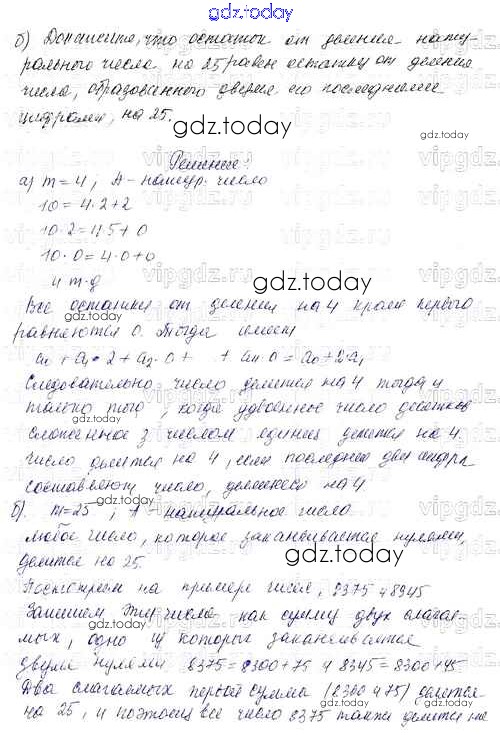 gdz.today
б) Докажите, что остаток от деления нату-
рального числа на 25 равен остатку от деления
числа, образованного двумя его последними
цифрами, на 25.
gdz.today
Решение:
а) m = 4; А - натур. число
10 = 4·2+2
10·2 = 4·5+0
10·0 = 4·0+0
и т.д
gdz.today
Все остатки от деления на 4 кроме первого
равняются 0. Тогда имеем
a₀ + a₁·2 + a₂·0 + + aₙ·0 = a₀ + 2a₁
Следовательно, число делится на 4 тогда и
только того, когда удвоенное число десятков
сложенное з числом единиц делится на 4.
число делится на 4, если последнее две цифры
составляют число, делящееся на 4
б). m=25; А - натуральное число
любое число, которое заканчивается нулями,
делится на 25.
gdz.today
Посмотрим на примере чисел, 8375 и 8345
Запишем эти числа как сумму двух слагае-
мых, одно из которых заканчивается
двумя нулями 8375 = 8300+75 и 8345 = 8300+45
Два слагаемых первой суммы (8300 и 75) делятся
на 25, и поэтому все число 8375 также делится на
gdz.today